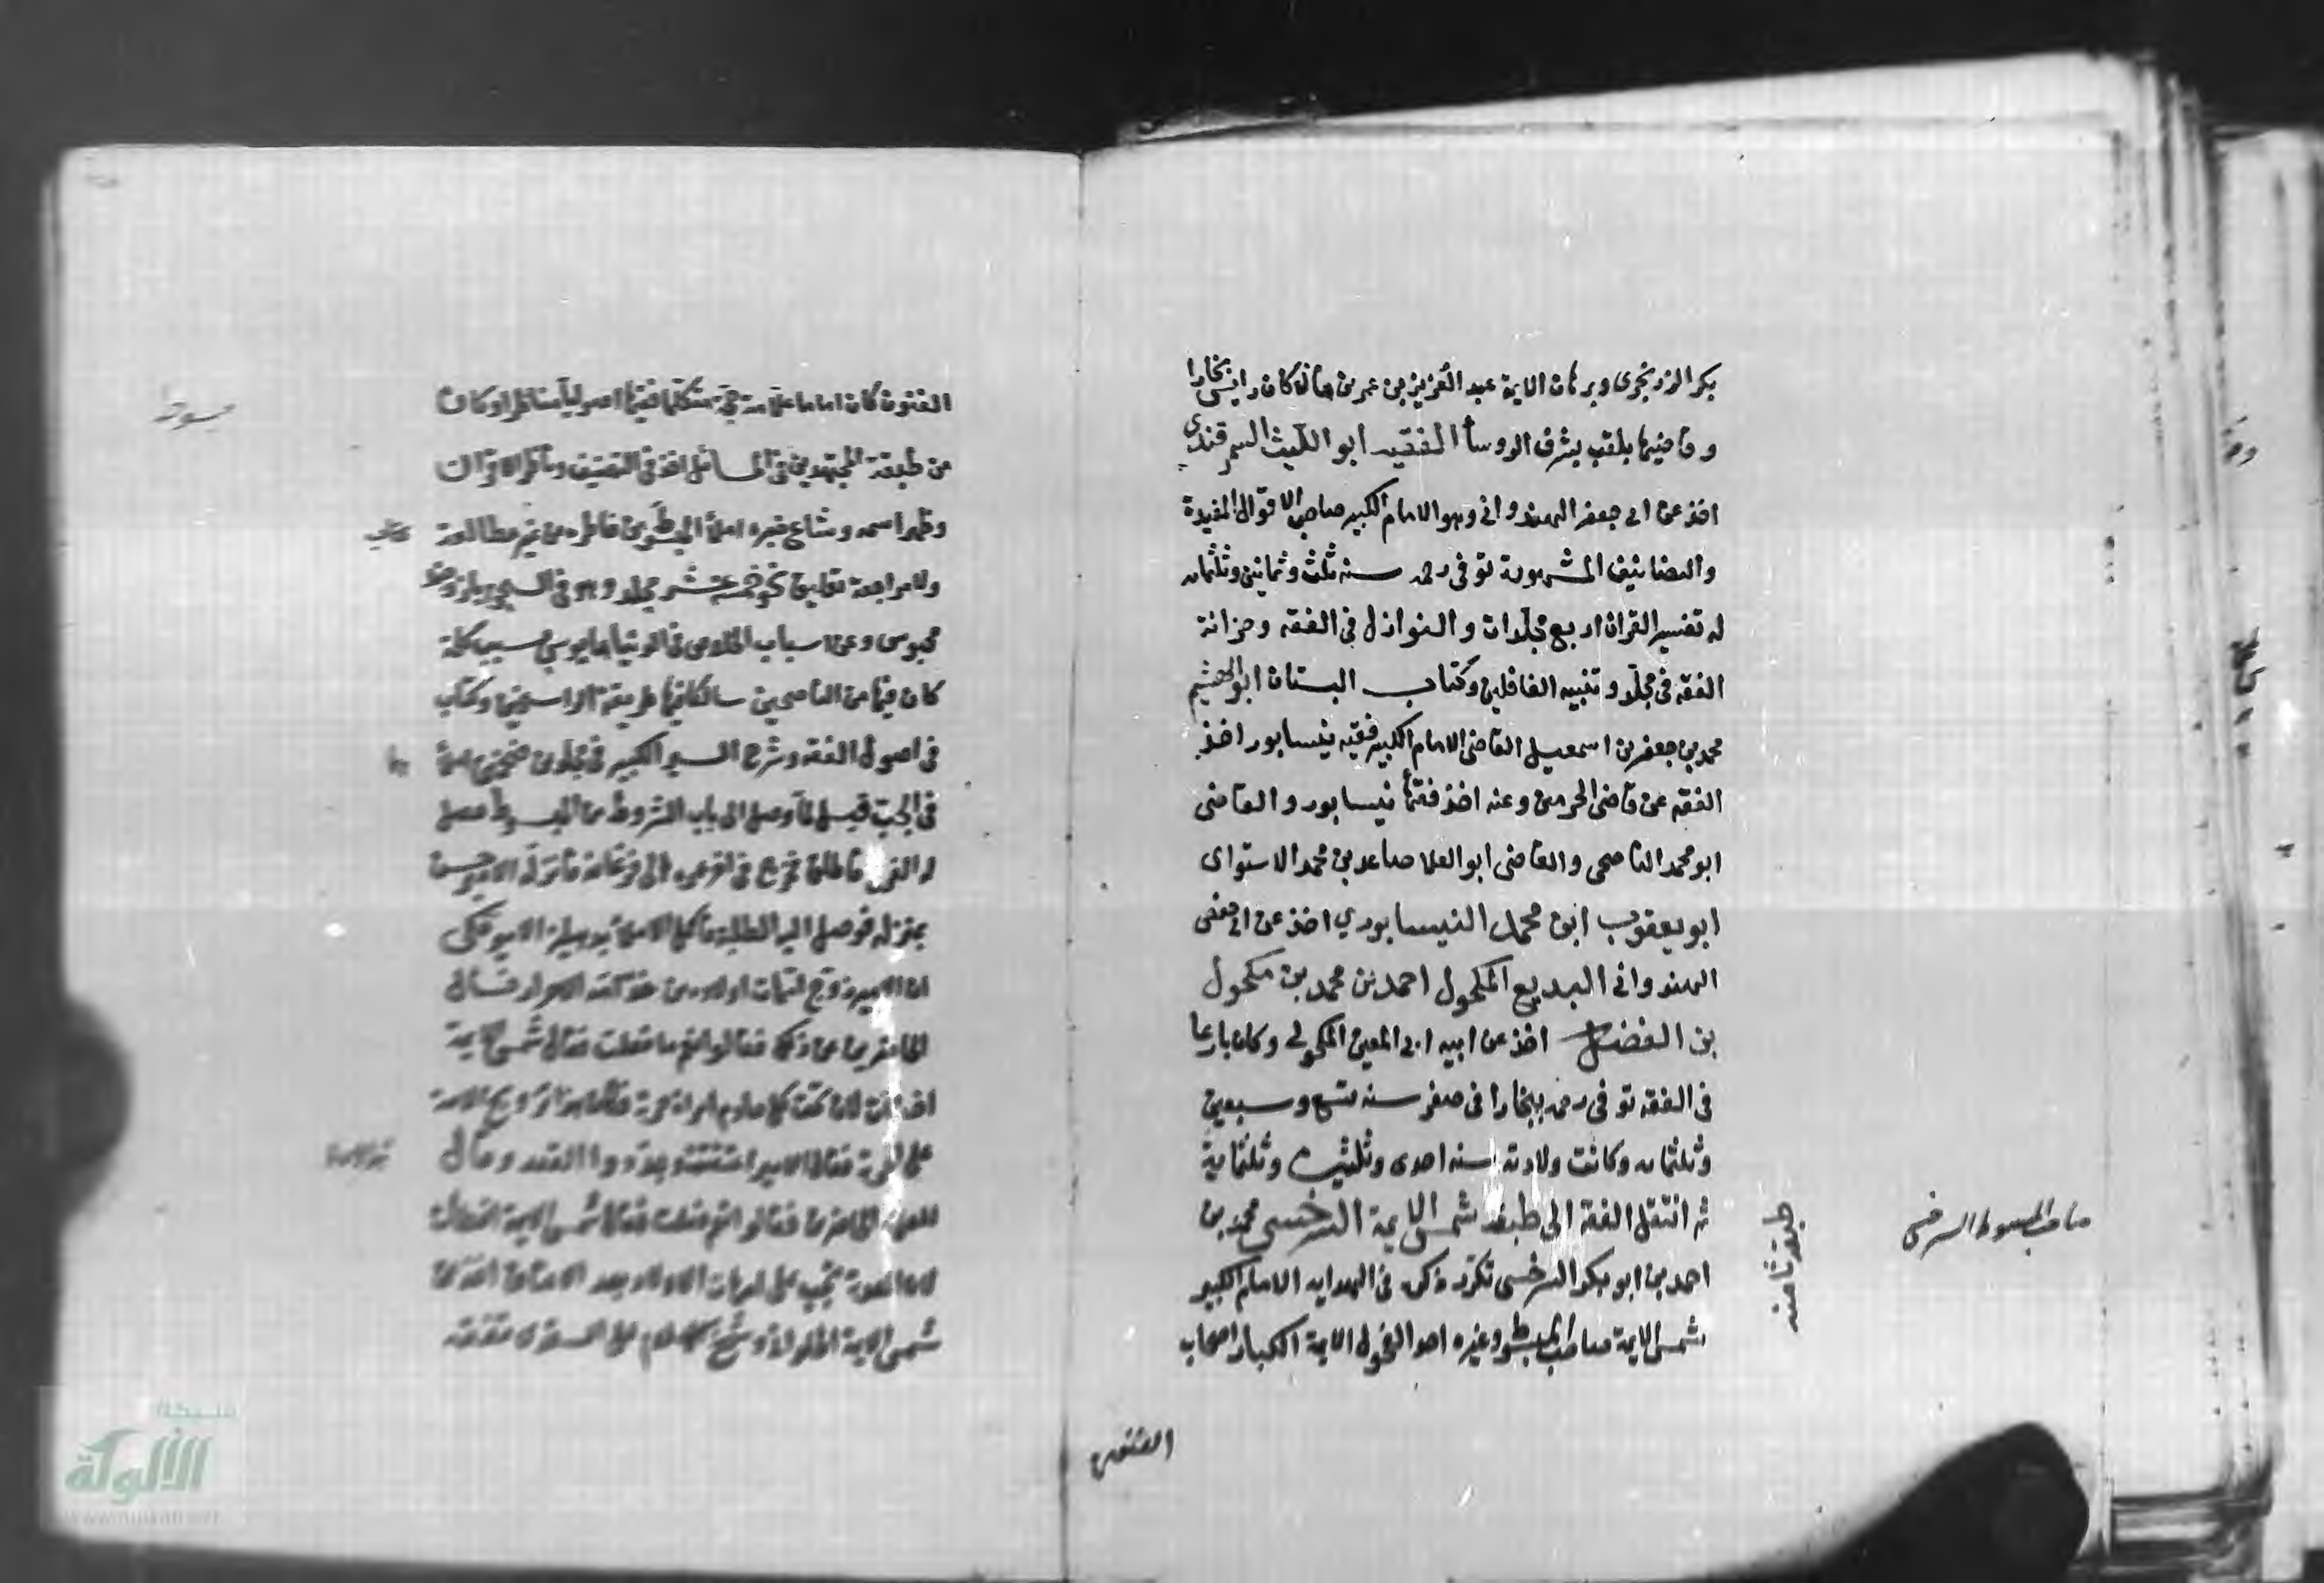 بكر الزرنجرى وبرهان الايمة عبد العزيز بن عمر بن مازة كان رايس بخارا
وقاضيها يلقب بشرف الروسأ الفقيه ابو الليث السمرقندي
اخذ عن ابى جعفر الهندوانى وهو الامام الكبير صاحب الاقوال المفيدة
والتصانيف المشهورة توفى رحمه سنه ثلث وثمانين وثلثمايه
له تفسير القران اربع مجلدات والنوازل فى الفقه وخزانة
الفقه فى مجلد وتنبيه الغافلين وكتاب البستان ابو الهشيم
محمد بن جعفر بن اسمعيل القاضى الامام الكبير فقيه نيسابور اخذ
الفقه عن قاضى الحرمين وعنه اخذ فقهأ نيسابور والقاضى
ابو محمد الناصحى والقاضى ابو العلا صاعد بن محمد الاستواى
ابو يعقوب ابن محمد النيسابوري اخذ عن ابى جعفر
الهندوانى البديع المكحول احمد بن محمد بن مكحول
بن الفضل اخذ عن ابيه ابى المعين المكحولى وكان بارعا
فى الفقه توفى رحمه ببخارا فى صفر سنه تسع وسبعين
وثلثمايه وكانت ولادته سنه احدى وثلثين وثلثماية
ثم انتقل الفقه الى طبقة شمس الايمة السرخسى محمد بن
احمد بن ابو بكر السرخسى تكرر ذكره فى الهدايه الامام الكبير
شمس الايمة صاحب المبسوط وغيره احد الفحول الايمة الكبار اصحاب
طبقة ثامنه
صاحب المبسوط السرخسى
الفنون
الفنون كان اماما علامة حجة متكلما فقيها اصوليا مناظرا وكان
من طبقة المجتهدين فى المسائل اخذ فى التصنيف وناظر الاقران
وظهر اسمه وشاع خبره املأ المبسوط من خاطره من غير مطالعة
ولا مراجعة تعليق نحو خمسة عشر مجلد وهو فى السجن
محبوس وعن اسباب الخلاص فى الدنيا مايوس بسبب كلمة
كان فيها من الناصحين سالكا فيها طريقة الراسخين وكتاب
فى اصول الفقه وشرح السير الكبير فى مجلدين ضخمين املأ
فى الجب قيل لما وصل الى باب الشروط من المبسوط حصل
له الفرج فاطلق فخرج فى اخر عمره الى فرغانة فانزله الامير حسن
بمنزله فوصل اليه الطلبة فاكمل الاملا
ان الامير زوج امهات اولاده من خدامه الاحرار فسال
الحاضرين عن ذلك فقالوا نعم ما فعلت فقال شمس الايمة
اخطأت لان تحت كل خادم امراة حرة فكان هذا تزويج الامة
على الحرة فقال الامير اعتقتهن وجددوا العقد وقال
للعلما الحاضرين فقالوا نعم ما فعلت فقال شمس الايمة اخطات
لان العدة تجب على امهات الاولاد بعد الاعتاق اخذ عن
شمس الايمة الحلوانى